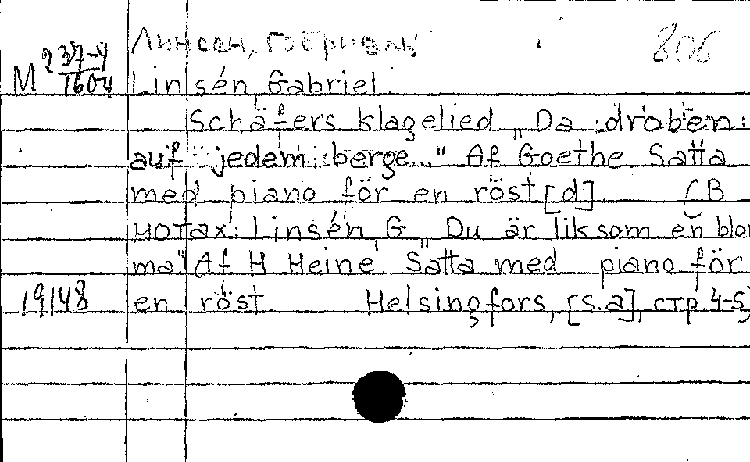 Линсен, Габриэль 806
М 237-4/1604
Linsén, Gabriel.
Schäfers klagelied „Da :droben:
auf :jedem :berge..." Af Goethe Satta
med piano för en röst [d] (В
нотах: Linsén, G „Du är liksom en blom
ma" Af H Heine Satta med piano för
19148 en röst Helsingfors, [s.a], стр 4-5)